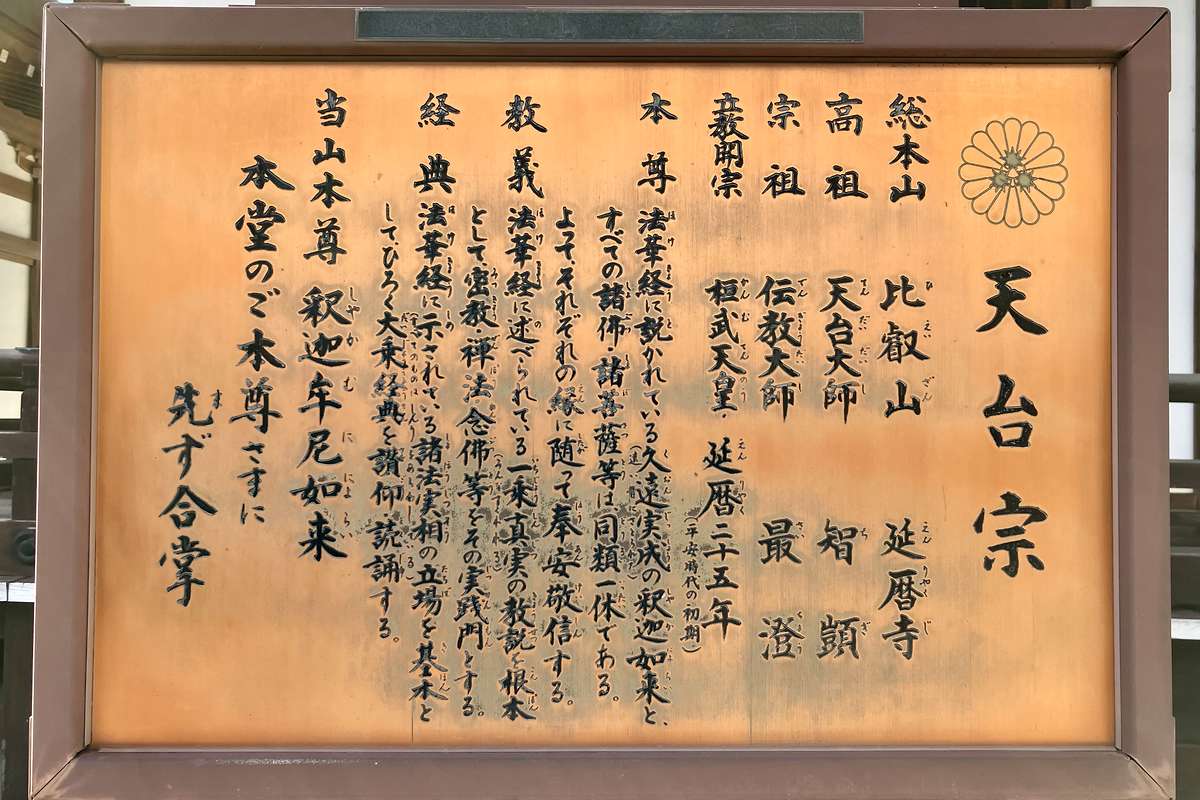 天台宗
総本山 比叡山 延暦寺
高祖 天台大師 智顗
宗祖 伝教大師 最澄
立教開宗 桓武天皇 延暦二十五年
(平安時代の初期)
本尊 法華経に説かれている久遠実成の釈迦如来と、
すべての諸佛・諸菩薩等は同類一体である。
よって、それぞれの縁に随って奉安敬信する。
教義 法華経に述べられている一乗真実の教説を根本
として、密教・禅法・念佛等をその実践門とする。
経典 法華経に示されている諸法実相の立場を基本と
して、ひろく大乗経典を讃仰読誦する。
当山本尊 釈迦牟尼如来
本堂のご本尊さまに
先ず合掌